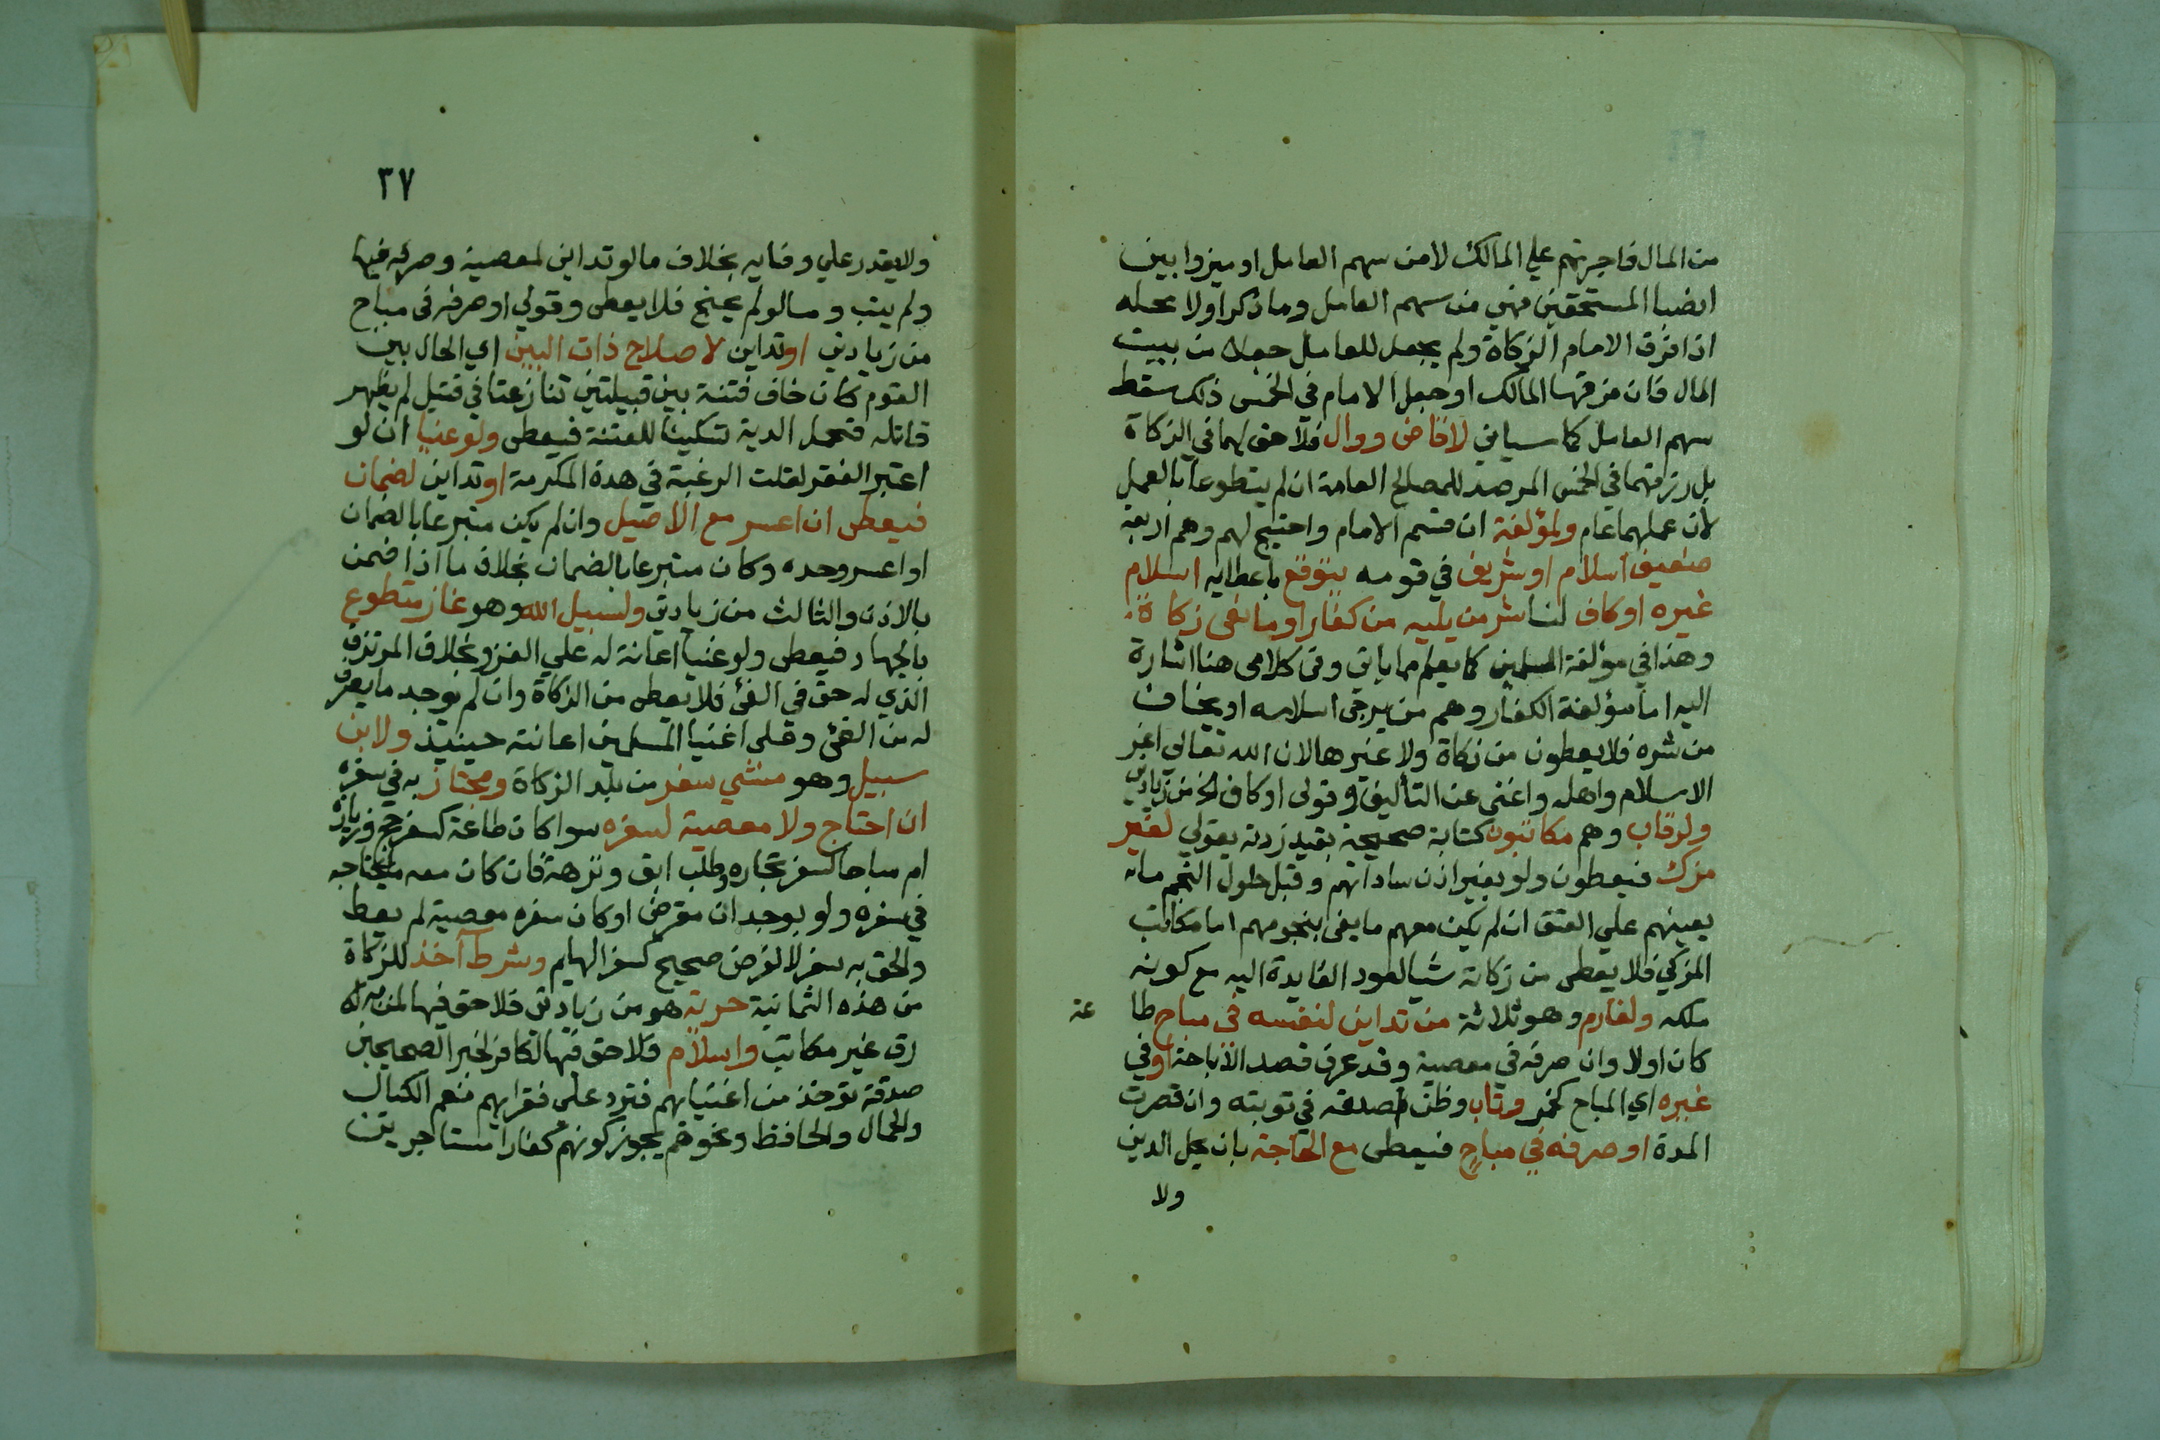 من المال فاجرتهم علي المالك لا من سهم العامل او ميزوا بين
انصبا المستحقين فهي من سهم العامل وما ذكر اولا محله
اذا فرق الامام الزكاة ولم يجعل للعامل جعلا من بيت
المال فان فرقها المالك او جعل الامام في الخمس ذلك سقط
سهم العامل كما سياتي لا قاض ووال فلا حق لهما في الزكاة
بل رزقهما في الخمس المرصد للمصالح العامة ان لم يتطوعا بالعمل
لان عملهما عام ولمؤلفة ان قسم الامام واحتيج لهم وهم اربعة
ضعيف اسلام او شريف في قومه يتوقع باعطايه اسلام
غيره او كاف لنا شر من يليه من كفار او مانعي زكاة
وهذا في مؤلفة المسلمين كما يعلم مما ياتي وفي كلامي هنا اشارة
اليه اما مؤلفة الكفار وهم من يرجى اسلامه او يخاف
من شره فلا يعطون من زكاة ولا غيرها لان الله تعالي اعز
الاسلام واهله واغنى عن التأليف وقولي او كاف الخ من زيادتي
ولرقاب وهم مكاتبون كتابة صحيحة بقيد زدته بقولي لغير
مزك فيعطون ولو بغير اذن ساداتهم وقبل حلول النجم ما
يعينهم علي العتق ان لم يكن معهم ما يفي بنجومهم اما مكاتب
المزكي فلا يعطى من زكاته شيا لعود الفايدة اليه مع كونه
ملكه ولغارم وهو ثلاثة من تداين لنفسه في مباح طا
عة
كان اولا وان صرفه في معصية وقد عرف قصد الاباحة او في
غيره اي المباح كخمر وتاب وظن صدقه في توبته وان قصرت
المدة او صرفه في مباح فيعطى مع الحاجة بان يحل الدين
ولا
٣٧
ولا يقدر علي وفايه بخلاف ما لو تداين لمعصية وصرفه فيها
ولم يتب وما لو لم يحتج فلا يعطى وقولي او صرفه في مباح
من زيادتي او تداين لاصلاح ذات البين اي الحال بين
القوم كان خاف فتنة بين قبيلتين تنازعتا في قتيل لم يظهر
قاتله فتحمل الدية تسكينا للفتنة فيعطى ولو غنيا ان لو
اعتبر الفقر لقلت الرغبة في هذه المكرمة او تداين لضمان
فيعطى ان اعسر مع الاصيل وان لم يكن متبرعا بالضمان
او اعسر وحده وكان متبرعا بالضمان بخلاف ما اذا ضمن
بالاذن والثالث من زيادتي ولسبيل الله وهو غاز متطوع
بالجهاد فيعطى ولو غنيا اعانة له علي الغزو بخلاف المرتزق
الذي له حق في الفئ فلا يعطى من الزكاة وان لم يوجد ما يصرف
له من الفئ وعلى اغنيا المسلمين اعانته حينيذ ولابن
سبيل وهو منشي سفر من بلد الزكاة ومجتاز به في سفره
ان احتاج ولا معصية لسفره سوا كان طاعة كسفر حج وزيارة
ام مباحا كسفر تجاره وطلب ابق ونزهة فان كان معه ما يحتاجه
في سفره ولو بوجدان مقرض او كان سفره معصية لم يعط
والحق به سفر لا لغرض صحيح كسفر الهايم وشرط آخذ للزكاة
من هذه الثمانية حرية هو من زيادتي فلا حق فيها لمن به
رق غير مكاتب واسلام فلا حق فيها لكافر لخبر الصحيحين
صدقة توخذ من اغنيايهم فترد علي فقرايهم نعم الكيال
والحمال والحافظ ونحوهم يجوز كونهم كفارا مستاجرين